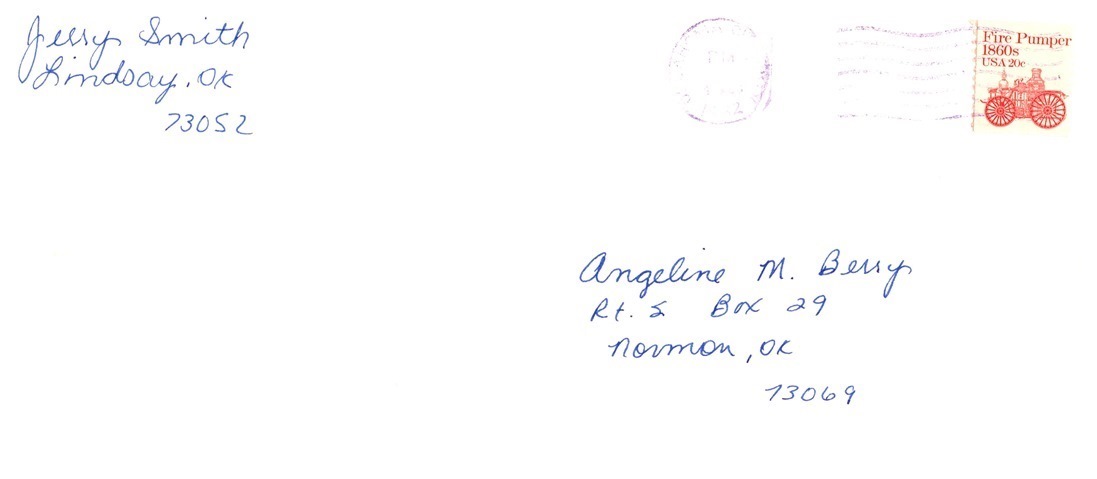 Jerry Smith
Lindsay, OK
73052
Fire Pumper
1860s
USA 20c
Angeline M. Berry
Rt. 2 Box 29
Norman, OK
73069